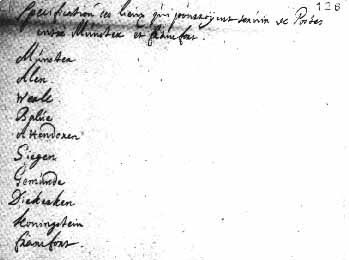 126
Specification des lieux qui pourroyent servir de Postes
entre Munster et francfort.
Münster
Alen
Werle
Balve
Attendoren
Siegen
Gemünde
Diekirken
Koningstein
francfort.